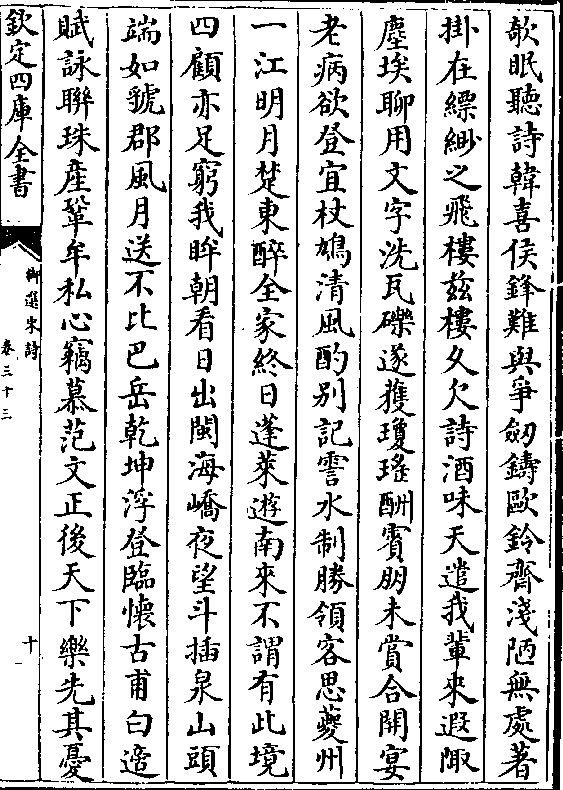 欹眠聽詩韓喜侯鋒難與爭劒鑄歐鈴齊淺陋無處著
掛在縹緲之飛樓玆樓久欠詩酒味天遣我輩來遐陬
塵埃聊用文字洗瓦礫遂獲瓊瑤酬賓朋未賞合開宴
老病欲登宜杖鳩清風酌别記霅水制勝領客思夔州
一江明月楚東醉全家終日蓬萊遊南來不謂有此境
四顧亦足窮我眸朝看日出閩海嶠夜望斗插泉山頭
端如虢郡風月送不比巴岳乾坤浮登臨懷古甫白遊
賦詠聨珠産鞏牟私心竊慕范文正後天下樂先其憂
欽定四庫全書
御選宋詩
卷三十三
十